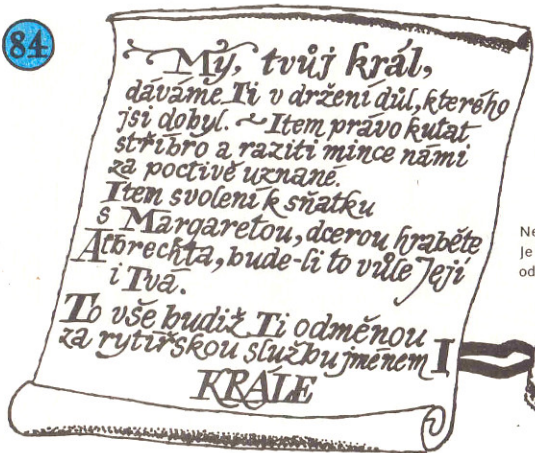 84
Mý, tvůj král,
dáváme Ti v držení důl, kterého
jsi dobyl. ~ Item právo kutat
stříbro a raziti mince námi
za poctivě uznané.
Item svolení k sňatku
s Margaretou, dcerou hraběte
Albrechta, bude-li to vůle Její
i Tvá.
To vše budiž Ti odměnou
za rytířskou službu jménem I
KRÁLE
Ne
Je
od